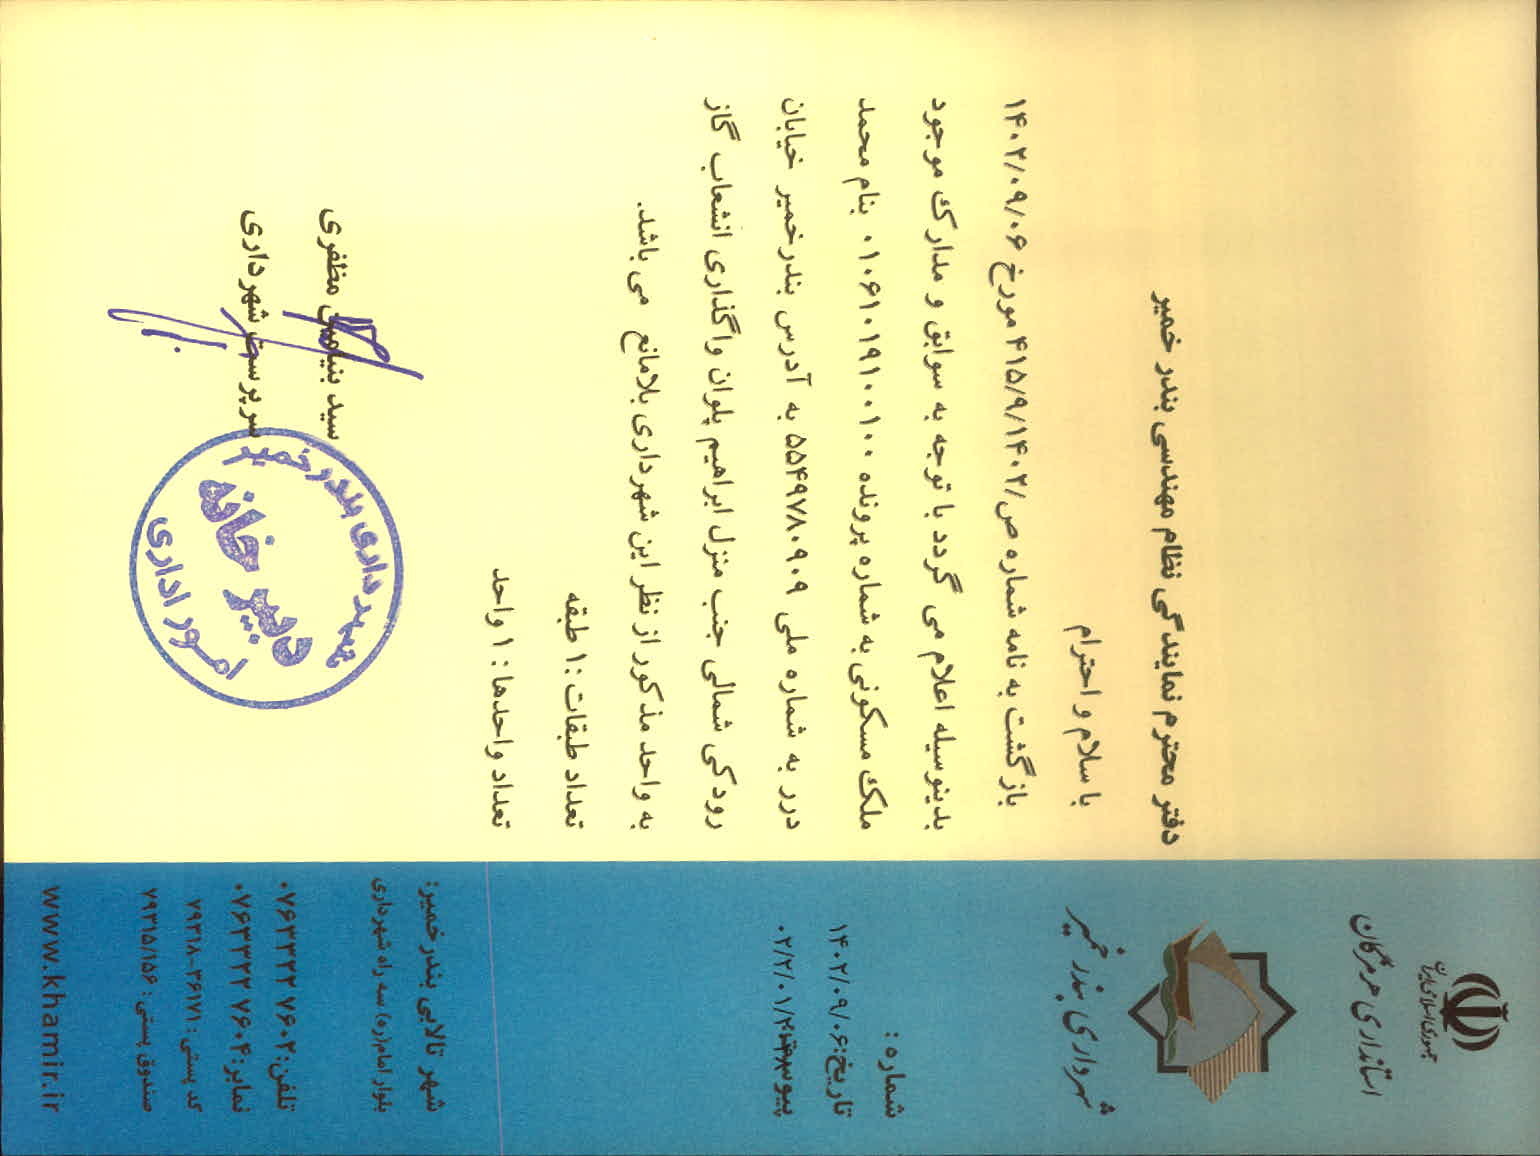 جمهوری اسلامی ایران
استانداری هرمزگان
شهرداری بندر خمیر
شماره:
تاریخ:۱۴۰۲/۰۹/۰۶
۰۲/۲/۰۱/
دفتر محترم نمایندگی نظام مهندسی بندر خمیر
با سلام و احترام
بازگشت به نامه شماره ص/۴۱۵/۹/۱۴۰۲ مورخ ۱۴۰۲/۰۹/۰۶
بدینوسیله اعلام می گردد با توجه به سوابق و مدارک موجود
ملک مسکونی به شماره پرونده ۰۱۰۶۱۰۱۹۱۰۰۱۰۰ بنام محمد
درر به شماره ملی ۵۵۴۹۷۸۰۹۰۹ به آدرس بندرخمیر خیابان
رودکی شمالی جنب منزل ابراهیم پلوان واگذاری انشعاب گاز
به واحد مذکور از نظر این شهرداری بلامانع می باشد.
تعداد طبقات :۱ طبقه
تعداد واحدها: ۱ واحد
سید بنیامین مظفری
سرپرست شهرداری
شهرداری بندر خمیر
دبیرخانه
امور اداری
شهر تالابی بندر خمیر:
بلوار امام(ره) سه راه شهرداری
تلفن: ۰۷۶۳۳۲۲ ۷۶۰۲
نمابر: ۰۷۶۳۳۲۲ ۷۶۰۴
کد پستی: ۳۶۱۷۱-۷۹۳۱۸
صندوق پستی: ۷۹۳۱۵/۱۵۶
www.khamir.ir